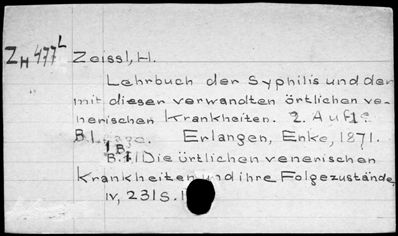 ZH 477L Zeissl, H.
Lehrbuch der Syphilis und der
mit dieser verwandten örtlichen ve-
nerischen Krankheiten. 2. Aufl.
B.I. Erlangen, Enke, 1871.
1 B.
B.I Die örtlichen venerischen
Krankheiten und ihre Folgezustände,
IV, 231 S.